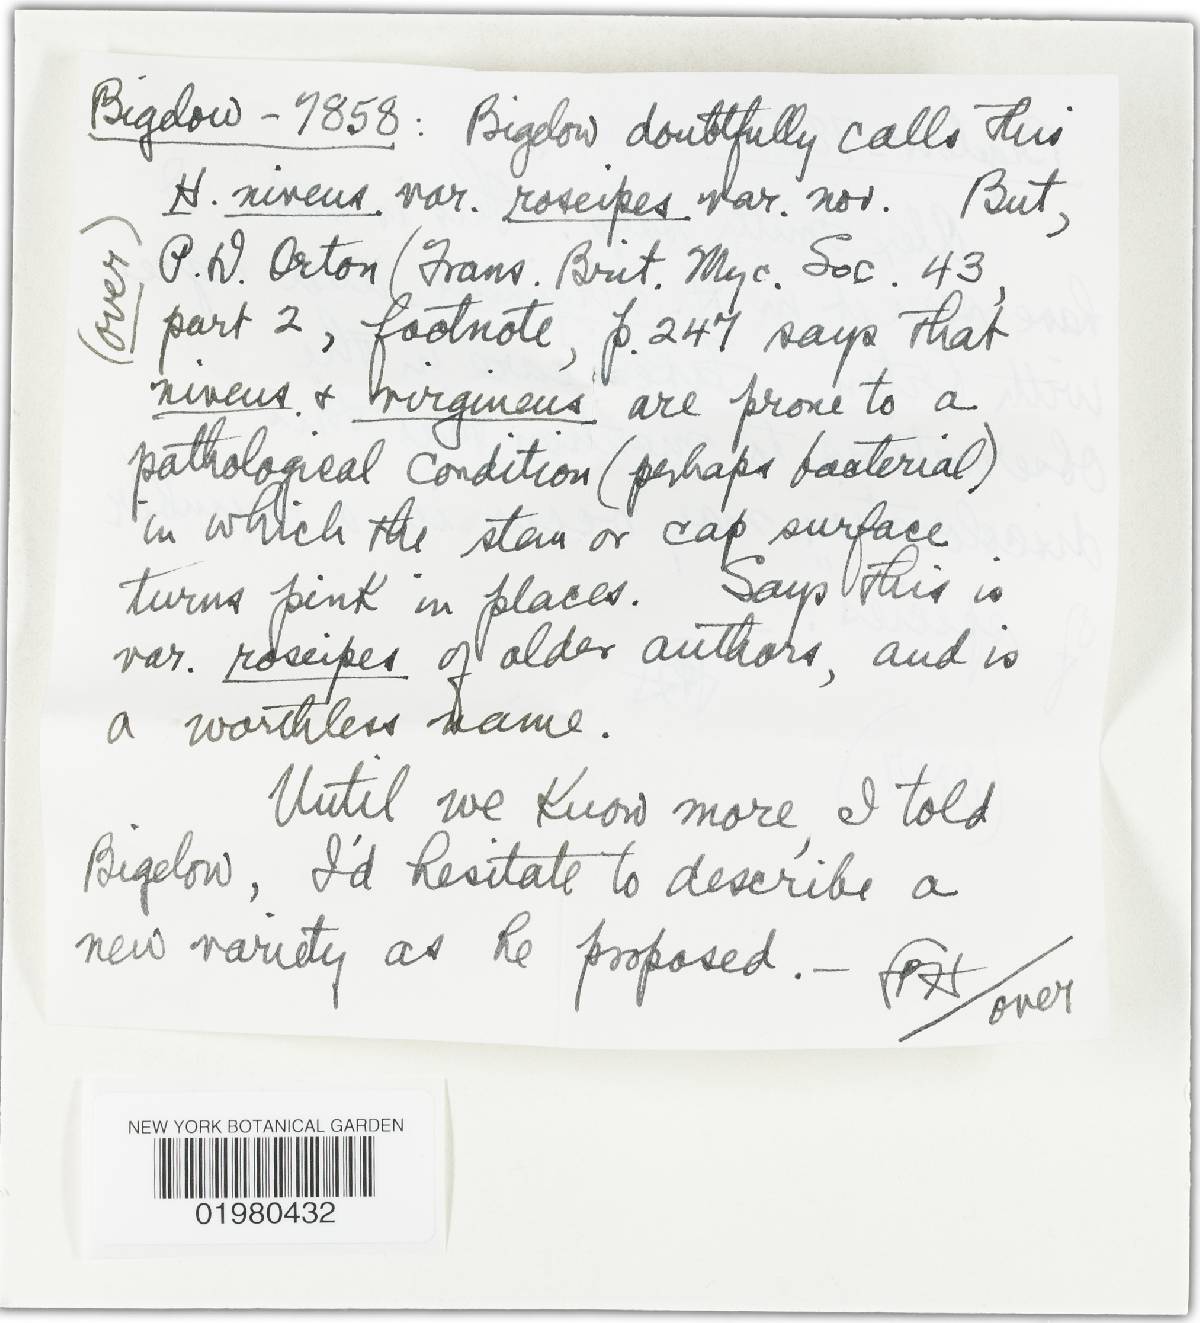 Bigelow - 7858: Bigelow doubtfully calls this
H. niveus var. roseipes var. nov. But,
(over)
P.D. Orton (Trans. Brit. Myc. Soc. 43,
part 2, footnote, p. 247 says that
niveus & virgineus are prone to a
pathological condition (perhaps bacterial)
in which the stem or cap surface
turns pink in places. Says this is
var. roseipes of older authors, and is
a worthless name.
Until we know more, I told
Bigelow, I'd hesitate to describe a
new variety as he proposed. —
over
NEW YORK BOTANICAL GARDEN
01980432